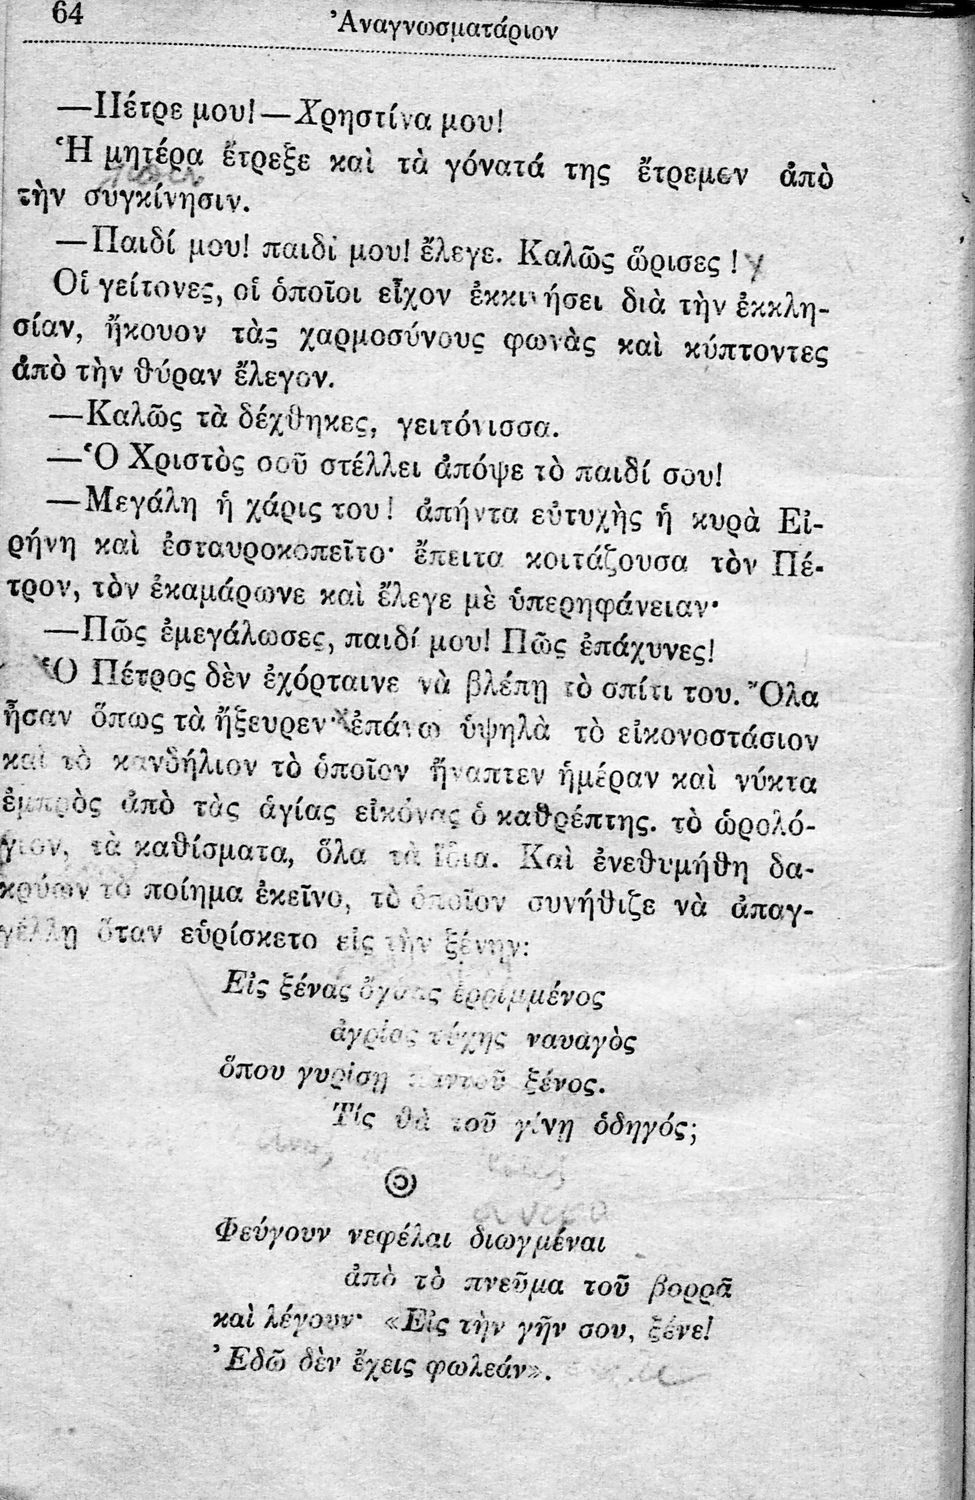 64
Ἀναγνωσματάριον
—Πέτρε μου!—Χρηστίνα μου!
Ἡ μητέρα ἔτρεξε καὶ τὰ γόνατά της ἔτρεμεν ἀπὸ
τὴν συγκίνησιν.
—Παιδί μου! παιδί μου! ἔλεγε. Καλῶς ὥρισες!
Οἱ γείτονες, οἱ ὁποῖοι εἶχον ἐκκινήσει διὰ τὴν ἐκκλη-
σίαν, ἤκουον τὰς χαρμοσύνους φωνὰς καὶ κύπτοντες
ἀπὸ τὴν θύραν ἔλεγον.
—Καλῶς τὰ δέχθηκες, γειτόνισσα.
—Ὁ Χριστὸς σοῦ στέλλει ἀπόψε τὸ παιδί σου!
—Μεγάλη ἡ χάρις του! ἀπήντα εὐτυχὴς ἡ κυρὰ Εἰ-
ρήνη καὶ ἐσταυροκοπεῖτο· ἔπειτα κοιτάζουσα τὸν Πέ-
τρον, τὸν ἐκαμάρωνε καὶ ἔλεγε μὲ ὑπερηφάνειαν·
—Πῶς ἐμεγάλωσες, παιδί μου! Πῶς ἐπάχυνες!
Ὁ Πέτρος δὲν ἐχόρταινε νὰ βλέπῃ τὸ σπίτι του. Ὅλα
ἦσαν ὅπως τὰ ἤξευρεν· ἐπάνω ὑψηλὰ τὸ εἰκονοστάσιον
καὶ τὸ κανδήλιον τὸ ὁποῖον ἤναπτεν ἡμέραν καὶ νύκτα
ἐμπρὸς ἀπὸ τὰς ἁγίας εἰκόνας ὁ καθρέπτης. τὸ ὡρολό-
γιον, τὰ καθίσματα, ὅλα τὰ ἴδια. Καὶ ἐνεθυμήθη δα-
κρύων τὸ ποίημα ἐκεῖνο, τὸ ὁποῖον συνήθιζε νὰ ἀπαγ-
γέλλῃ ὅταν εὑρίσκετο εἰς τὴν ξένην:
Εἰς ξένας ὄχθας ἐρριμμένος
ἀγρίας τύχης ναυαγὸς
ὅπου γυρίσῃ παντοῦ ξένος.
Τίς θὰ τοῦ γίνῃ ὁδηγός;
Φεύγουν νεφέλαι διωγμέναι
ἀπὸ τὸ πνεῦμα τοῦ βορρᾶ
καὶ λέγουν· «Εἰς τὴν γῆν σου, ξένε!
Ἐδῶ δὲν ἔχεις φωλεάν».